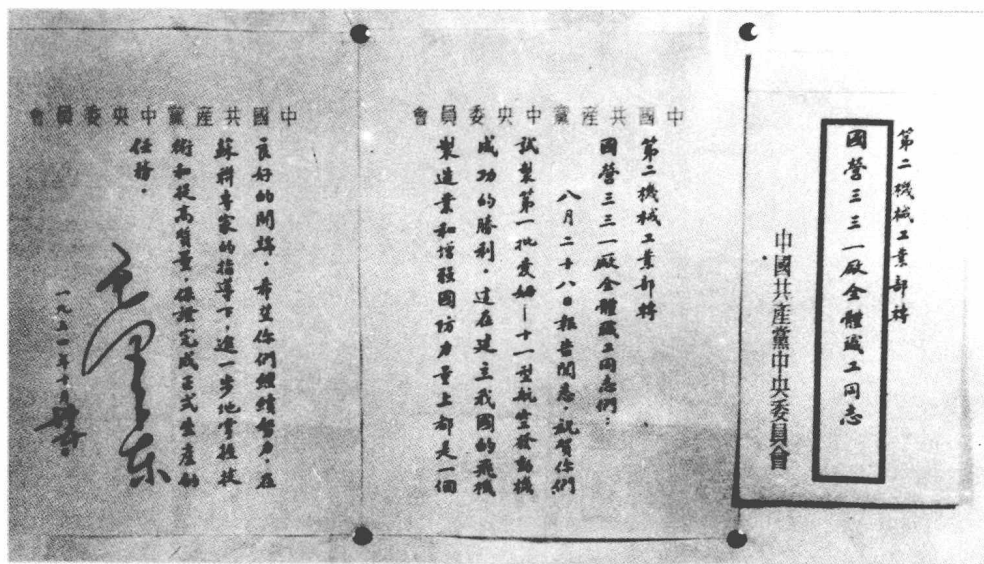 第二機械工業部轉
國營三三一廠全體職工同志
中國共產黨中央委員會
中國共產黨中央委員會
第二機械工業部轉
國營三三一廠全體職工同志們：
八月二十八日報告閱悉，祝賀你們
試製第一批愛姆—十一型航空發動機
成功的勝利。這在建立我國的飛機
製造業和增强國防力量上都是一個
中國共產黨中央委員會
良好的開端。希望你們繼續努力，在
蘇聯專家的指導下，進一步地掌握技
術和提高質量，保證完成正式生產的
任務。
毛澤東
一九五四年十月